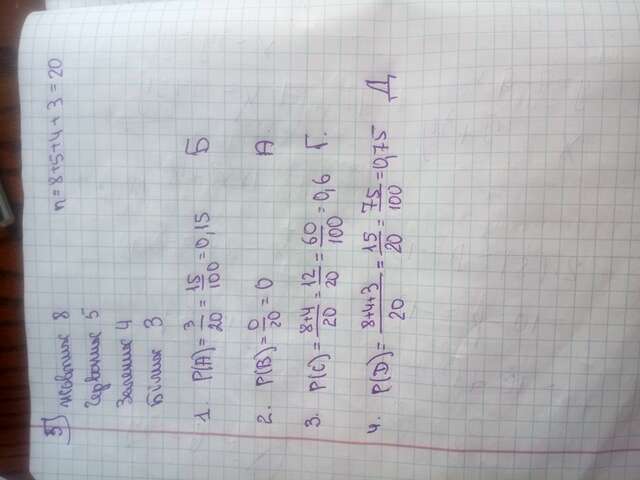 5 Жовтих 8 n = 8+5+4+3 = 20
Червоних 5
Зелених 4
Білих 3
1. P(A) = 3/20 = 15/100 = 0,15 Б
2. P(B) = 0/20 = 0 А.
3. P(C) = 8+4/20 = 12/20 = 60/100 = 0,6 Г.
4. P(D) = 8+4+3/20 = 15/20 = 75/100 = 0,75 Д